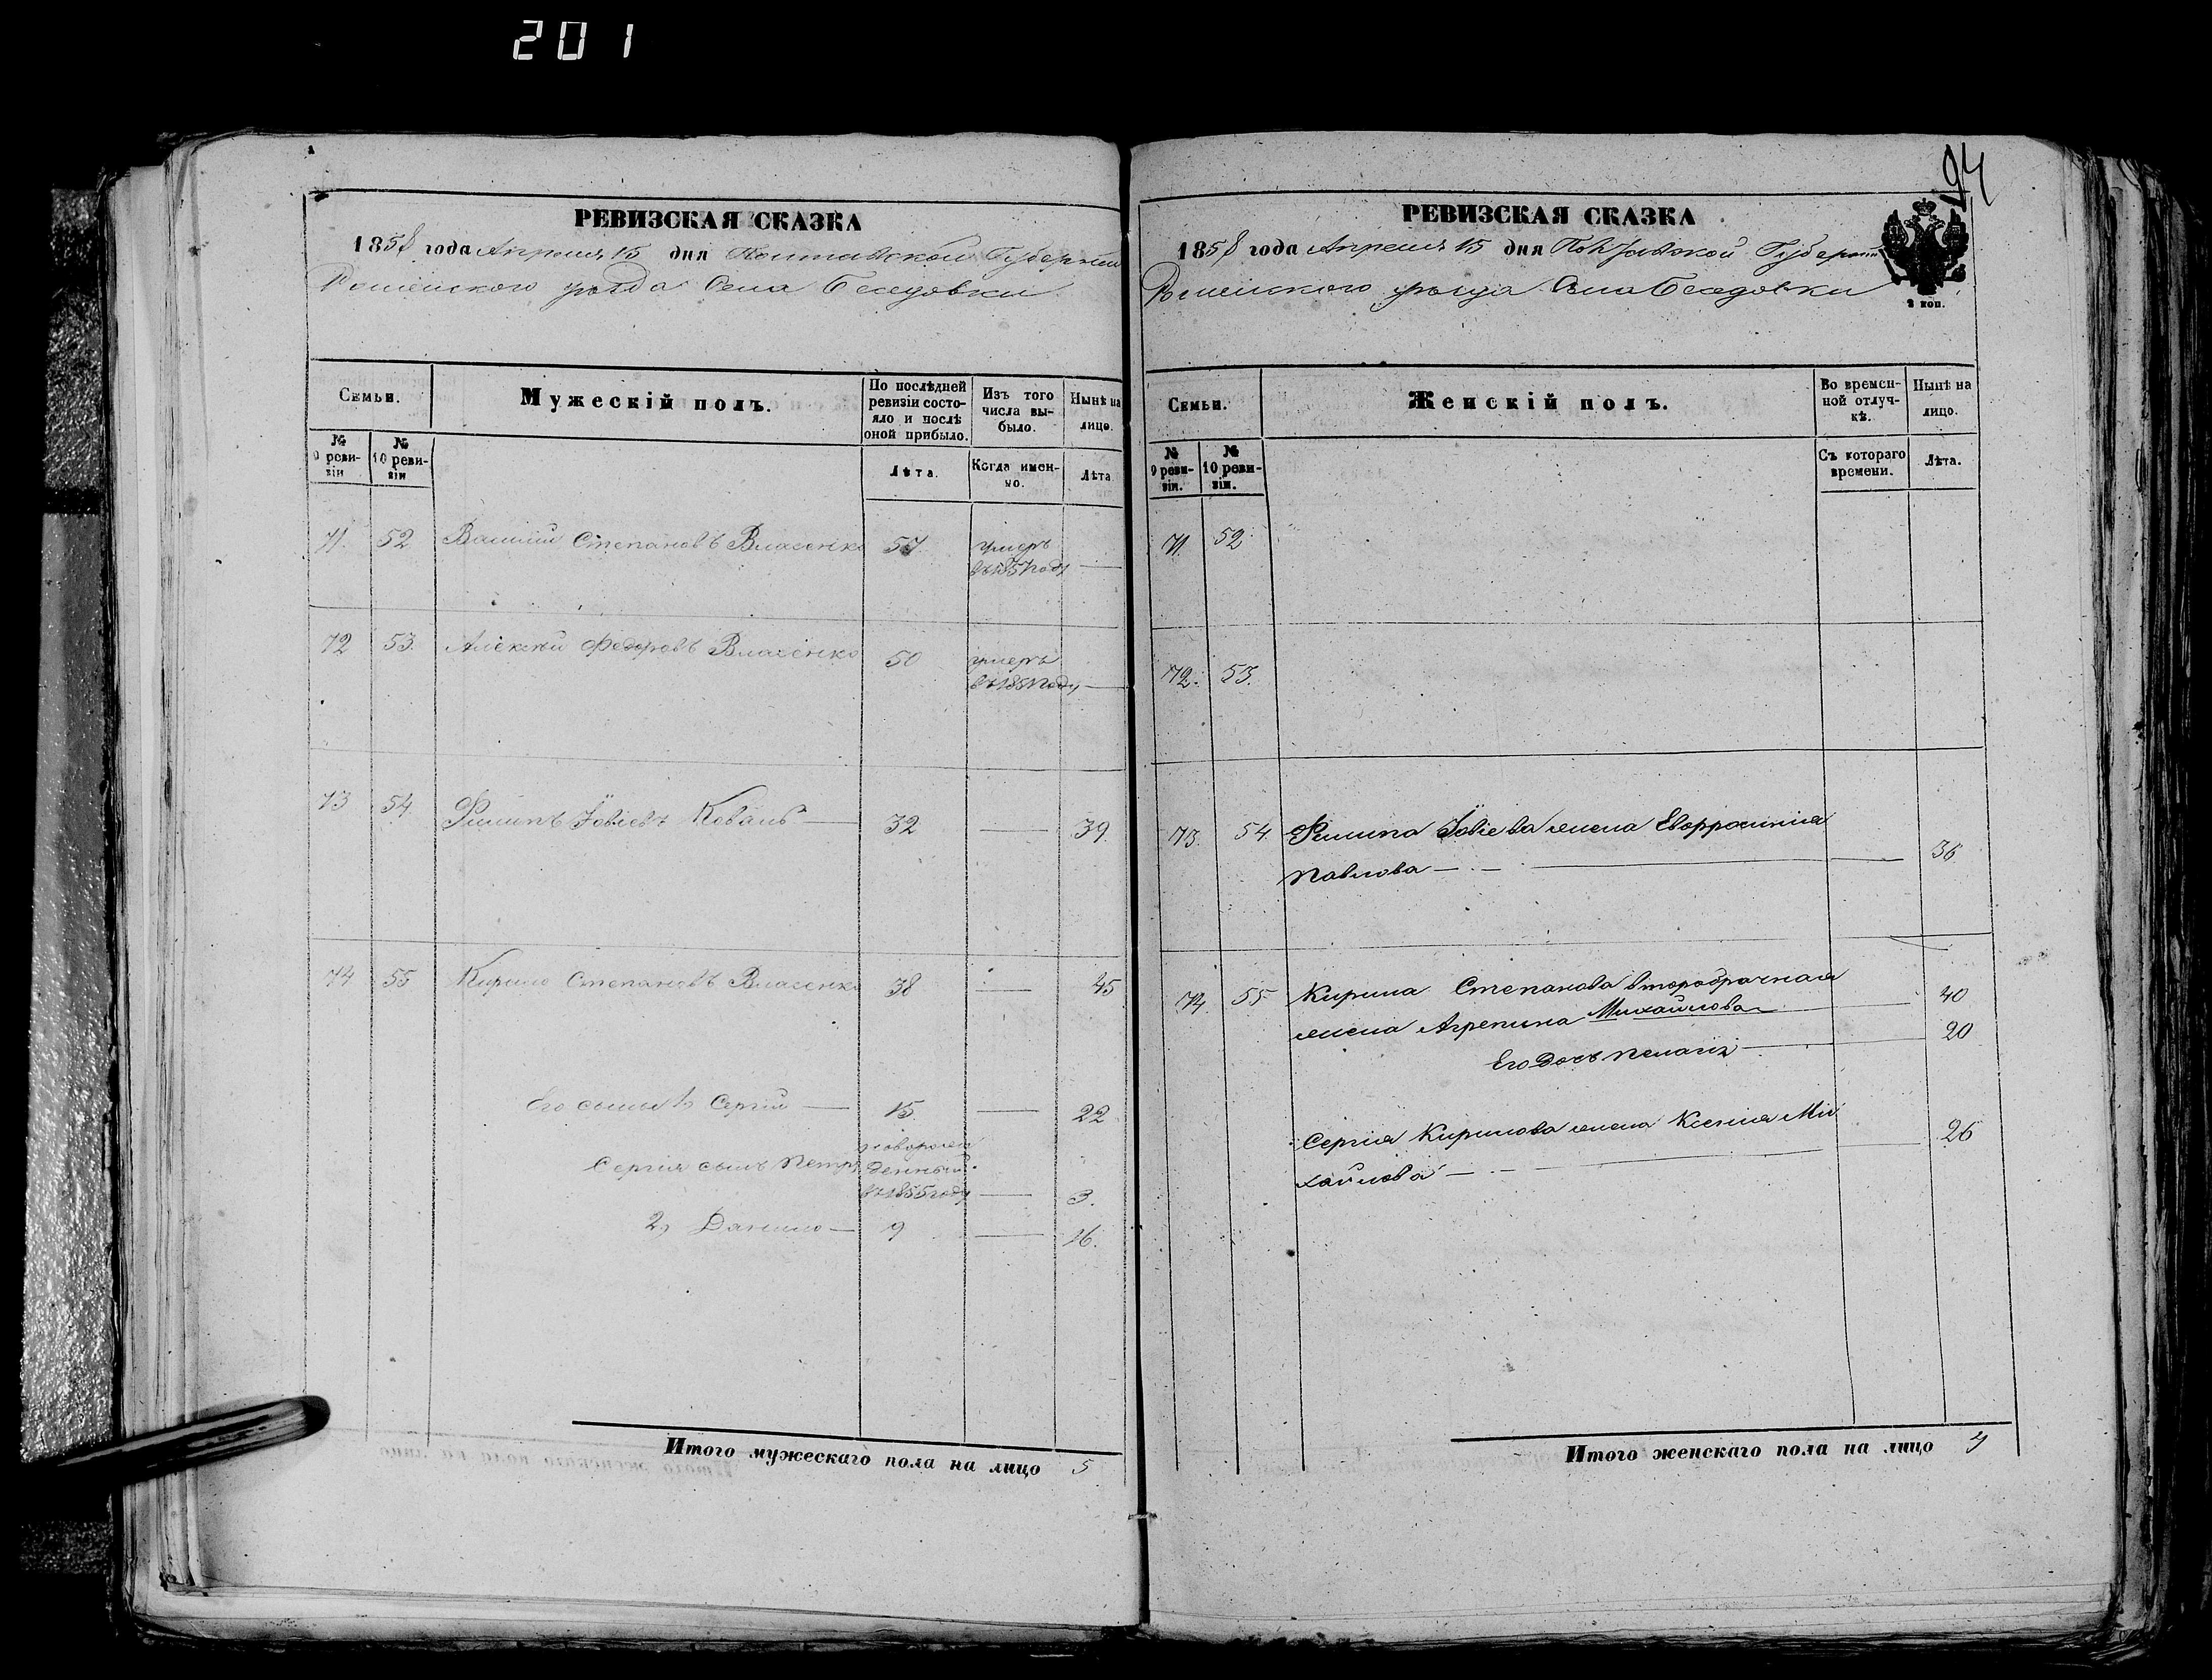 201
РЕВИЗСКАЯ СКАЗКА
1858 года Апреля 15 дня Полтавской Губернии
Роменского уезда Села Беседовки
Семьи.
Мужескій полъ.
По послѣдней ревизіи состояло и послѣ оной прибыло.
Изъ того числа выбыло.
Нынѣ на лицо.
№ 9 ревизіи
№ 10 ревизіи
Лѣта.
Когда именно.
Лѣта
71. 52 Василий Степановъ Власенко 57. умеръ
в 1857 году —
72 53. Алексѣй Федоровъ Власенко 50 умеръ
в 1851 году —
73 54. Филипъ Іовіевъ Коваль — 32 — 39.
74 55 Кирило Степановъ Власенко 38 — 45
Его сыны 1, Сергій — 15. — 22
Сергія сынъ Петръ новорож
денный
в 1855 году — 3.
2, Данило — 9 — 16.
Итого мужескаго пола на лицо 5
94
РЕВИЗСКАЯ СКАЗКА
1858 года Апреля 15 дня Полтавской Губернии
Роменского уезда Села Беседовки
2 коп.
Семьи.
Женскій полъ.
Во временной отлучкѣ.
Нынѣ на лицо.
№ 9 ревизіи.
№ 10 ревизіи.
Съ котораго времени.
Лѣта.
71. 52.
72. 53.
73. 54. Филипа Іовіева жена Евфросинія
Павлова — — 36
74. 55 Кирила Степанова второбрачная
жена Агрепина Михайлова — 40
Его дочь Пелагія — 20
Сергія Кирилова жена Ксенія Ми
хайлова — — 26
Итого женскаго пола на лицо 4